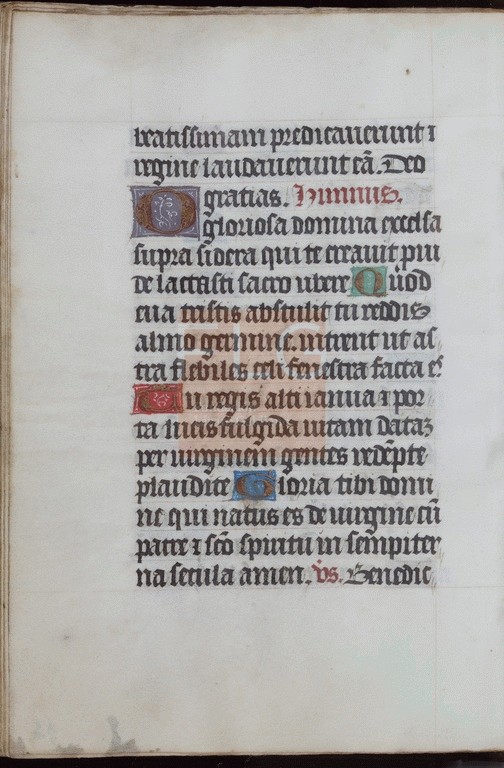 beatissimam predicaverunt ⁊
regine laudaverunt eā. Deo
gratias. Himnus.
O gloriosa domina excelsa
supra sidera qui te creavit pru
de lactasti sacro ubere Quod
eva tristis abstulit tu reddis
almo germine. intrent ut as
tra flebiles celi fenestra facta es
Tu regis alti ianua ⁊ por
ta lucis fulgida vitam datā
per virginem gentes redempte
plaudite Gloria tibi domi
ne qui natus es de virgine cū
patre ⁊ sc̄o spiritu in sempiter
na secula amen. vs. Benedic